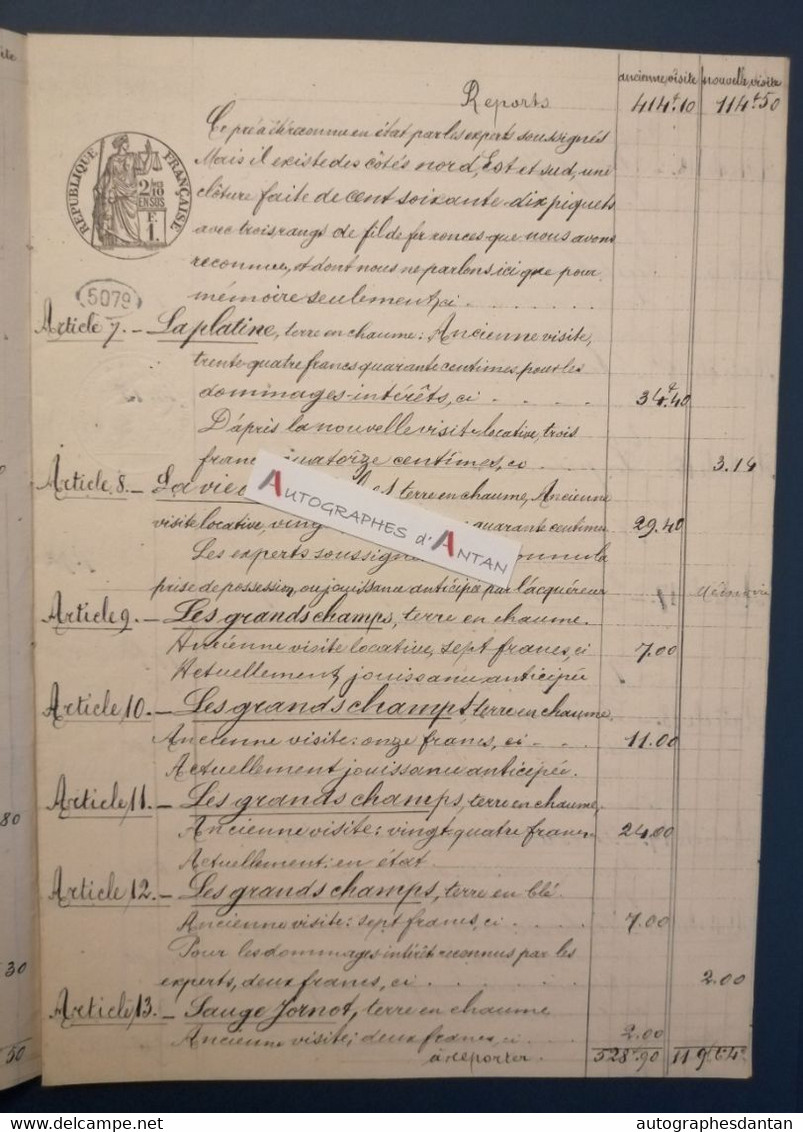 ancienne visite nouvelle visite
Reports 414f10 114f50
Ce pré a été reconnu en état par les experts soussignés
Mais il existe des côtés nord, Est et sud, une
clôture faite de cent soixante-dix piquets
avec trois rangs de fil de fer ronces que nous avons
reconnue, et dont nous ne parlons ici que pour
mémoire seulement, ci
RÉPUBLIQUE FRANÇAISE
2/10 EN SUS
1F.
5079
Article 7. – La platine, terre en chaume: Ancienne visite,
trente-quatre francs quarante centimes, pour les
dommages-intérêts, ci 34f40
D'après la nouvelle visite locative, trois
francs quatorze centimes, ci 3.14
Article 8. – La vie terre en chaume, Ancienne
visite locative, ving quarante centimes 29.40
Les experts soussign la
prise de possession, ou jouissance anticipée par l'acquéreur Mémoire
Article 9. – Les grands champs, terre en chaume.
Ancienne visite locative, sept francs, ci 7.00
Actuellement, jouissance anticipée
Article 10. – Les grands champs, terre en chaume,
Ancienne visite: onze francs, ci 11.00
Actuellement jouissance anticipée.
Article 11. – Les grands champs, terre en chaume,
Ancienne visite: vingt-quatre francs 24.00
Actuellement: en état.
Article 12. – Les grands champs, terre en blé.
Ancienne visite: sept francs, ci 7.00
Pour les dommages intérêt reconnus par les
experts, deux francs, ci 2.00
Article 13. – Sauge Jornot, terre en chaume
Ancienne visite; deux francs, ci 2.00
à reporter. 528f90 119f64c
80
30
50
AUTOGRAPHES d'ANTAN
delcampe.net
autographesdantan